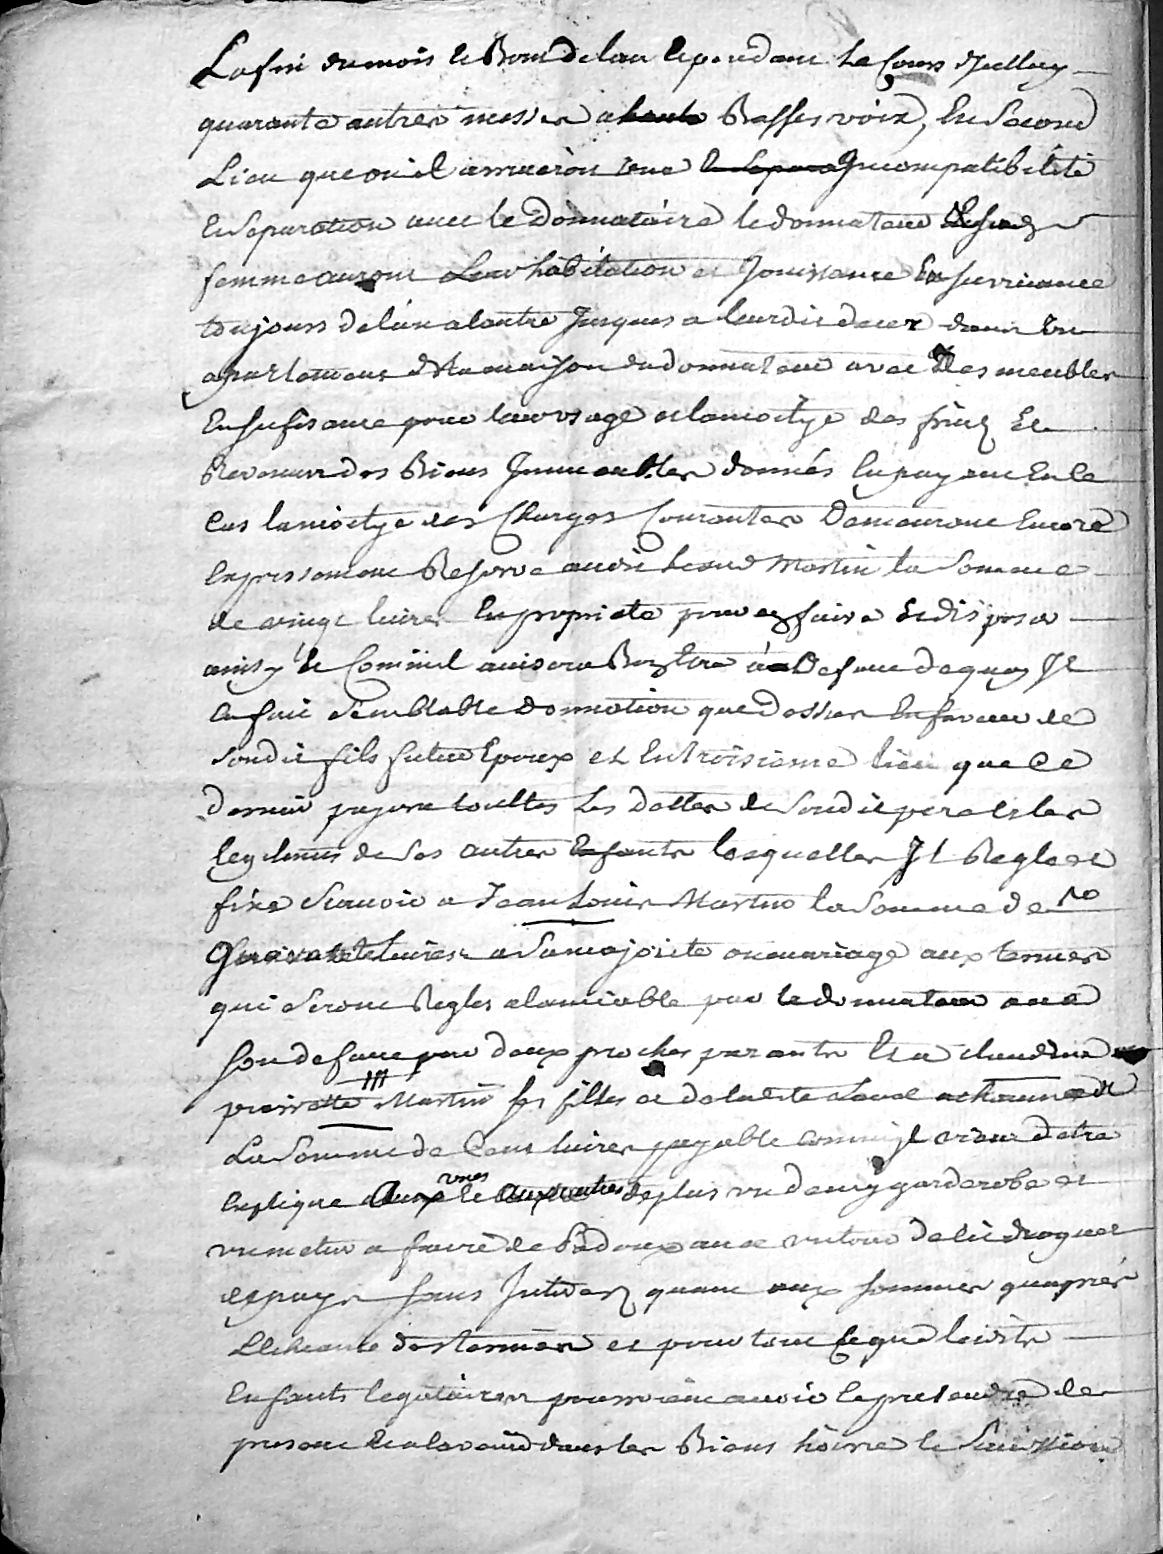 La fin du mois & Bout de lan & pendant le Cours dycelluy
quarante autres messes a haute Basses voix, En Second
Lieu que ou il arriveroit une & Separa Jncompatibilité
En Separation avec le Donnataire le donnateur &
femme auront Leur habitation et Jouissance En survivance
toujours de lun a lautre Jusques a leur dit deces dans un
apartement de la maison du donnateur avec des meubles
En sufisance pour leur usage et la moitye des fruits Et
Revenus des Biens Jmmeubles donnés En payant En ce
Cas la moitye des Charges Courantes Demeurant Encore
Expressement Reservé audit Martin la Somme
de vingt livres En proprieté pour en faire & disposer
ainsy & Comme il avisera Bon Etre a Defaut de quoy Jl
En fait Semblable donnation que dessus En faveur de
Son dit fils futur Epoux et En troisieme lieu que Ce
dernier payera touttes les dettes de Son dit pere et les
legitimes de Ses autres Enfants lesquelles Jl Regle et
fixe Scavoir a Jean Louis Martin la Somme de
quarante livres a Sa majorité ou mariage aux termes
qui Seront Regles a lamiable par le donnateur ou a
Son defaut par deux proches parants Et a claudine
pierrette Martin Ses filles et de la dite a chacune
La Somme de Cent livres payable comme Jl vient detre
Expliqué Aux unes & Aux autres de plus un demy garderobe et
un
et payes Sans Jnterez quant aux Sommes quapres
LEcheance des termes et pour tout Ce que lesdits
Enfants legitaires pourroient avoir & pretendre de
present & a lavenir dans les Biens hoirie & Succession